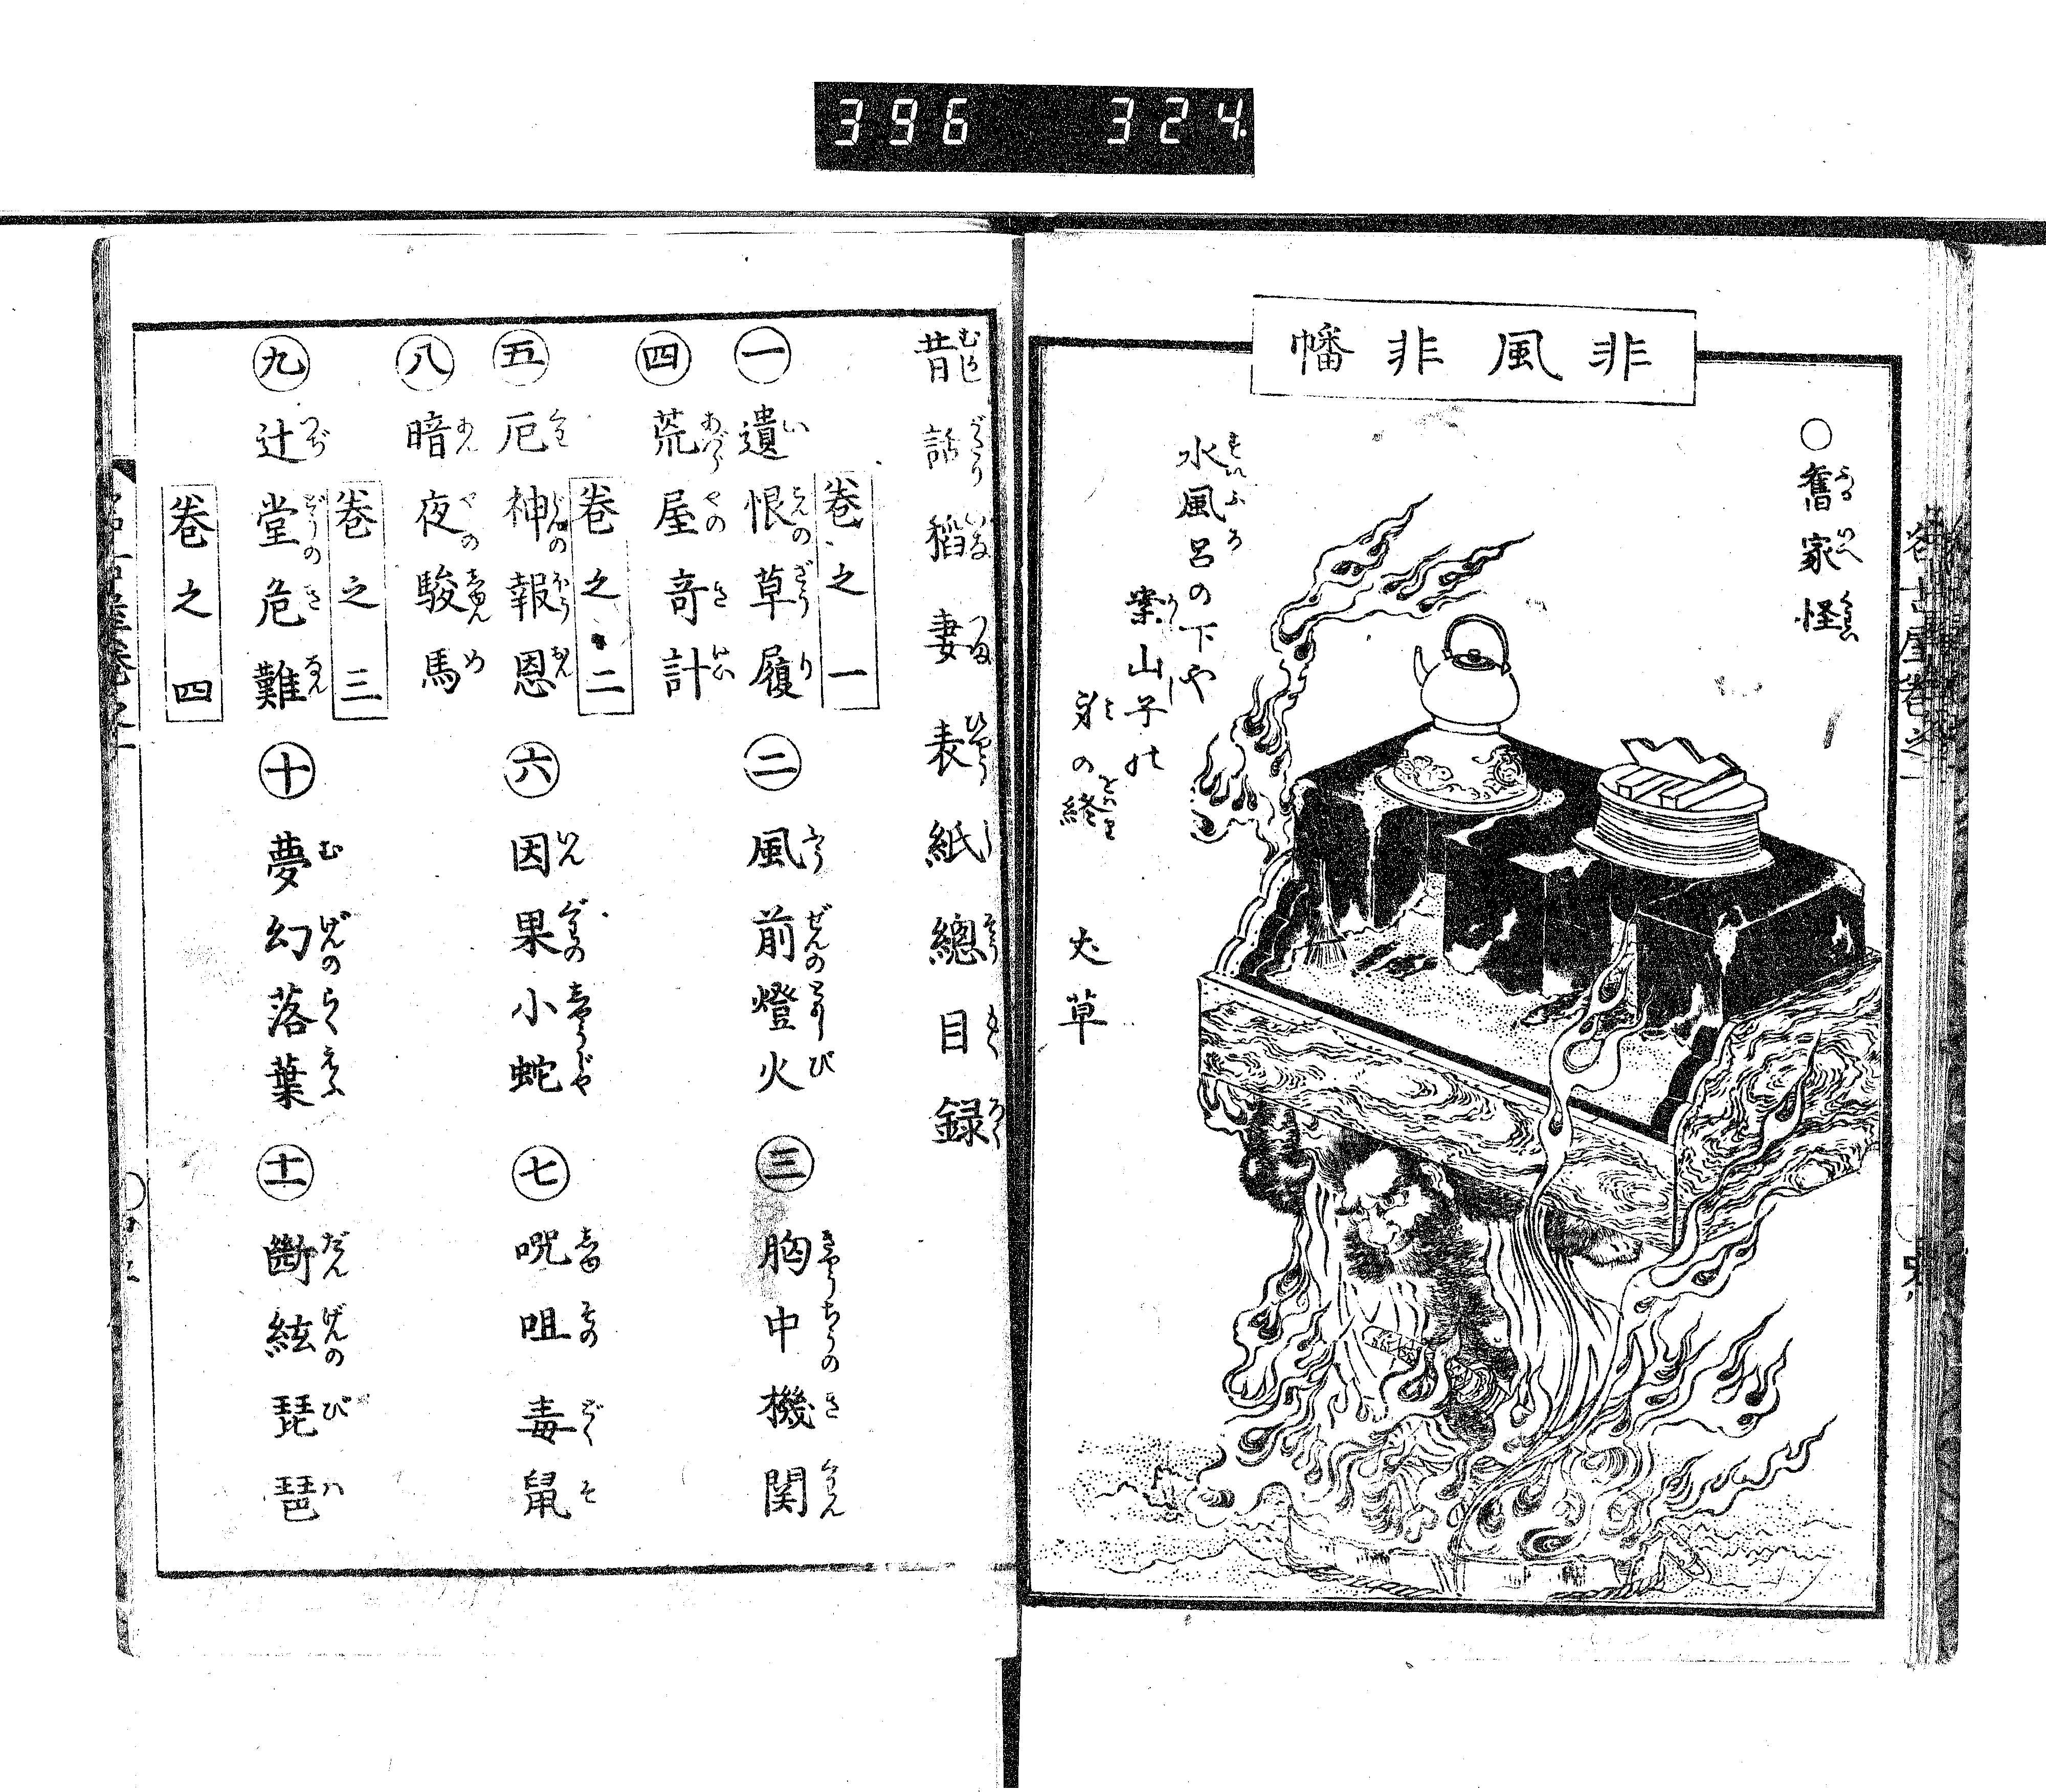 396 324
非風非幡
○舊家怪
水風呂の下や
案山子の
身の終
丈草
昔話稲妻表紙總目録
巻之一
一 遺恨草履 二 風前燈火 三 胸中機関
四 荒屋奇計
巻之二
五 厄神報恩 六 因果小蛇 七 呪咀毒鼠
八 暗夜駿馬
巻之三
九 辻堂危難 十 夢幻落葉 十一 斷絃琵琶
巻之四